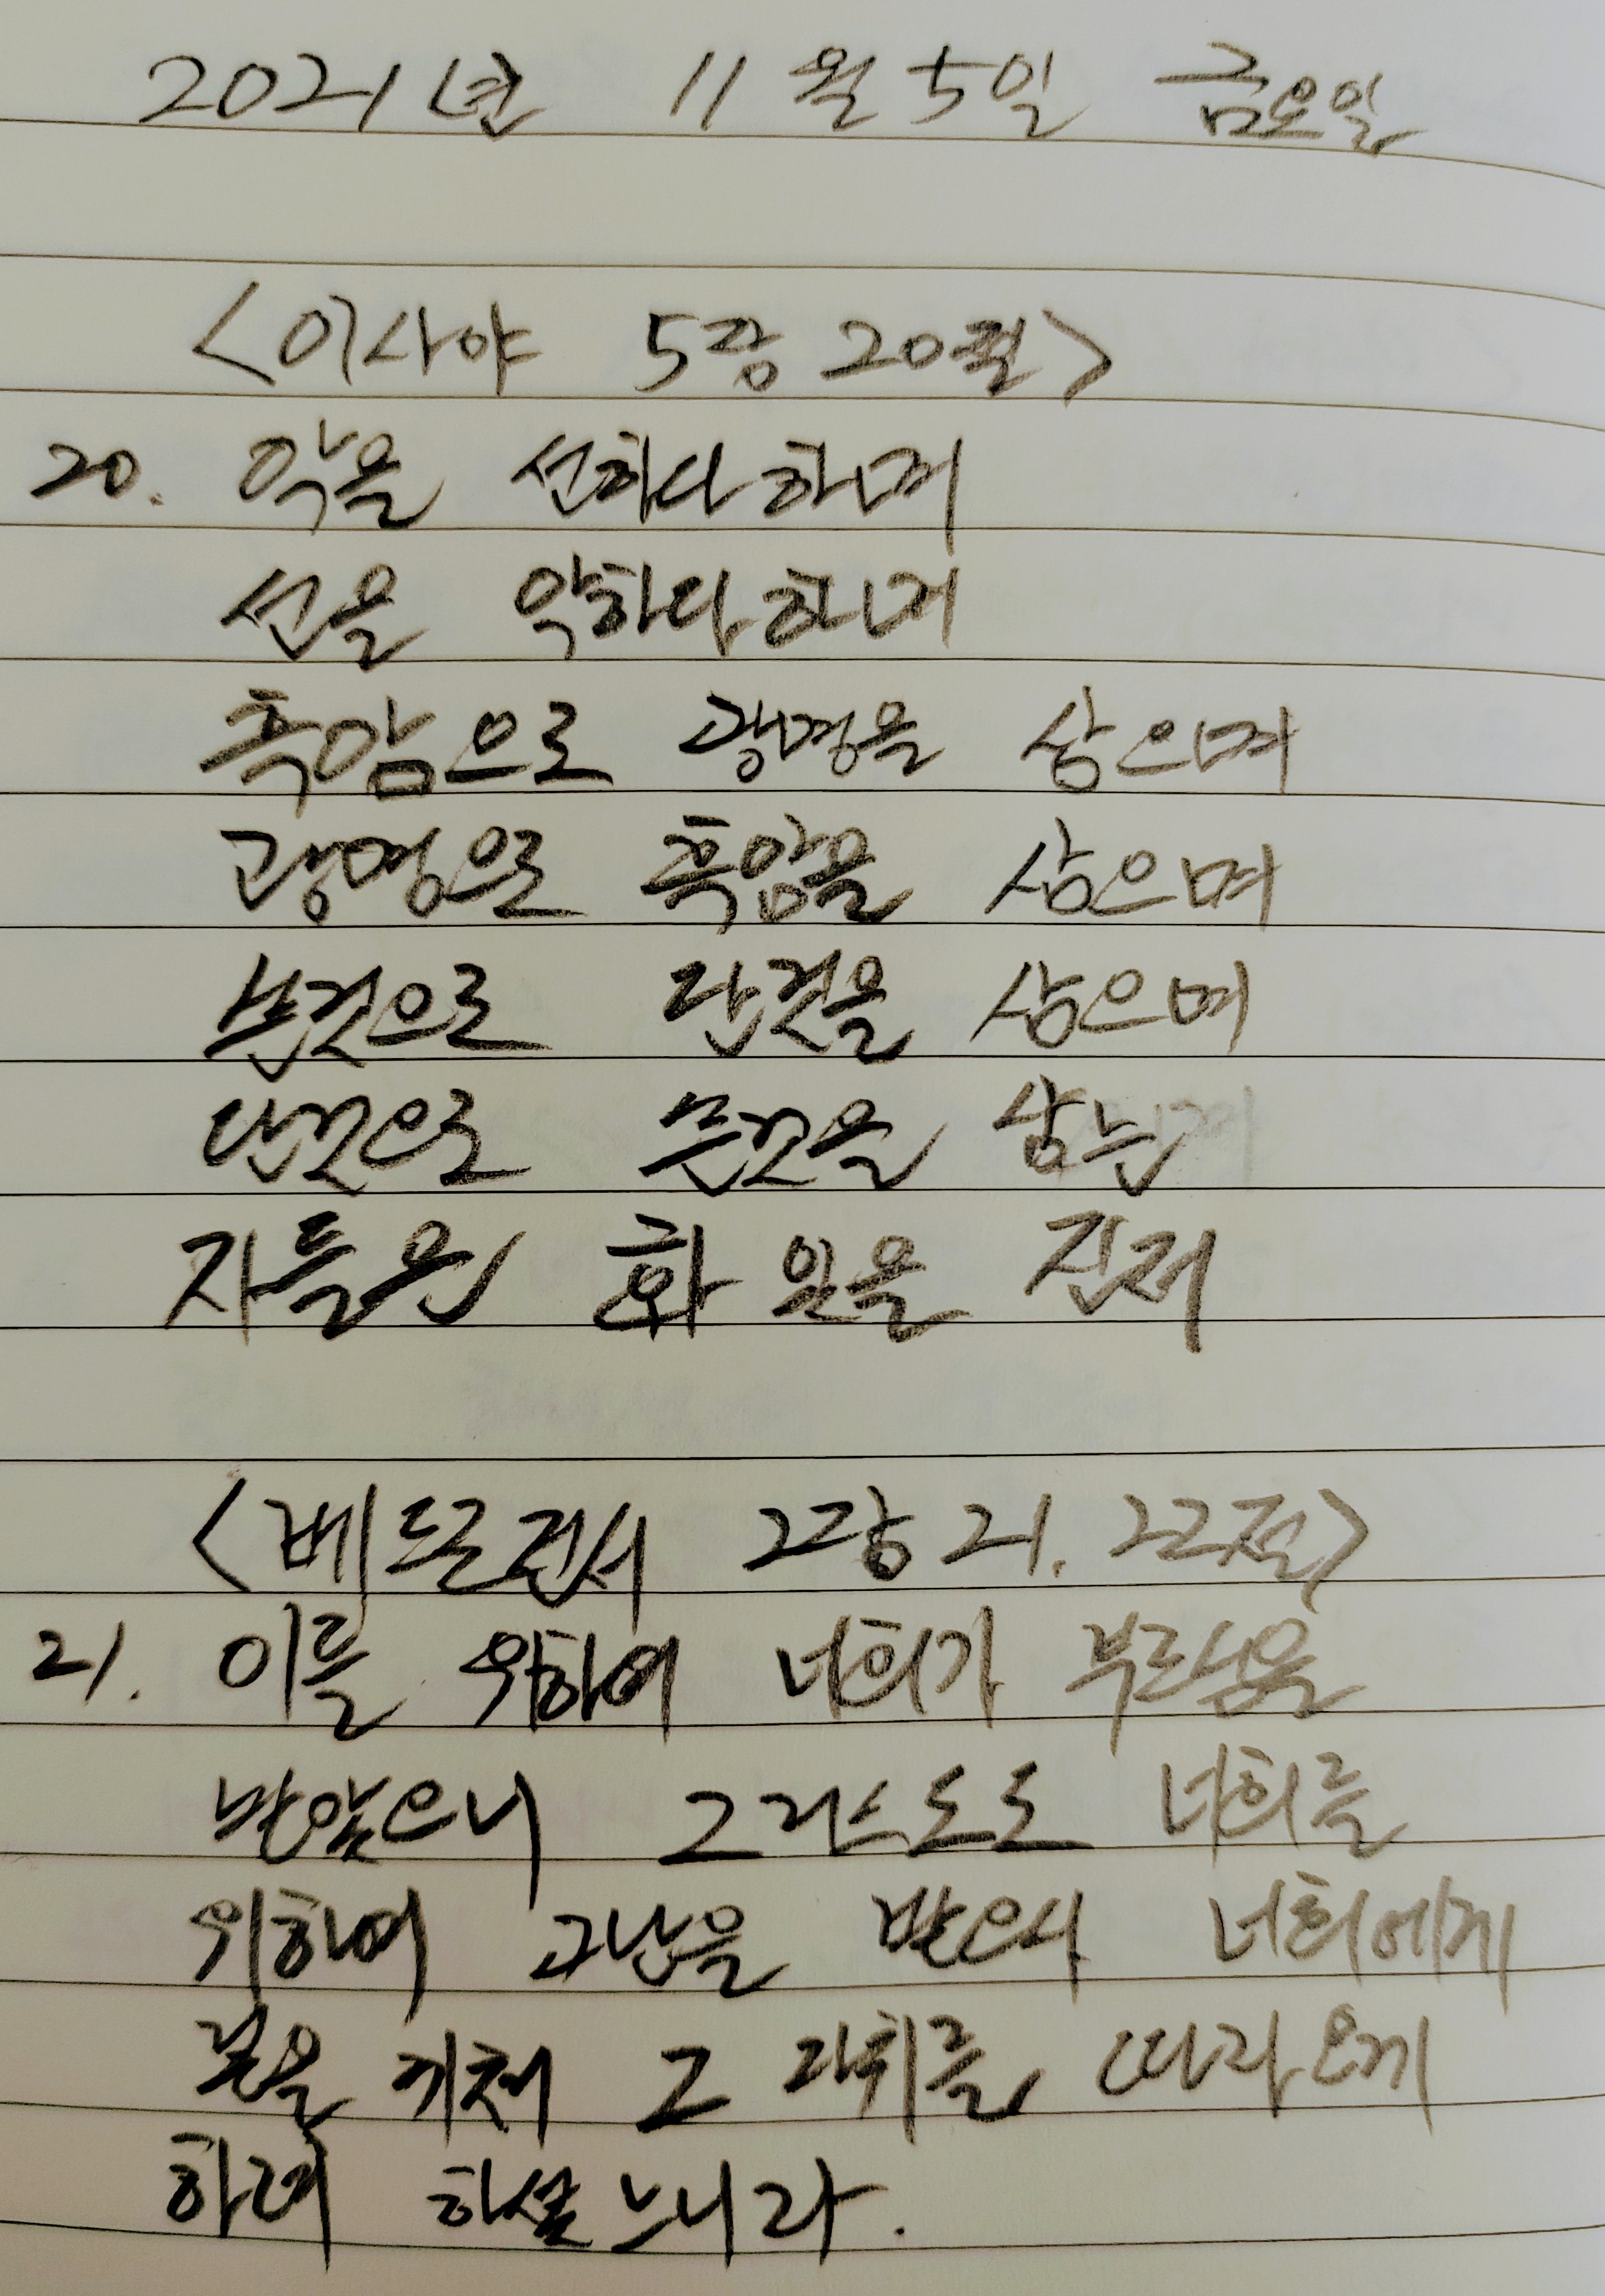 2021년 11월 5일 금요일
<이사야 5장 20절>
20. 악을 선하다하며
선을 악하다하며
흑암으로 광명을 삼으며
광명으로 흑암을 삼으며
쓴것으로 단것을 삼으며
단것으로 쓴것을 삼는
자들은 화 있을 진저
<베드로전서 2장 21. 22절>
21. 이를 위하여 너희가 부르심을
받았으니 그리스도도 너희를
위하여 고난을 받으사 너희에게
본을 끼쳐 그 자취를 따라오게
하려 하셨느니라.